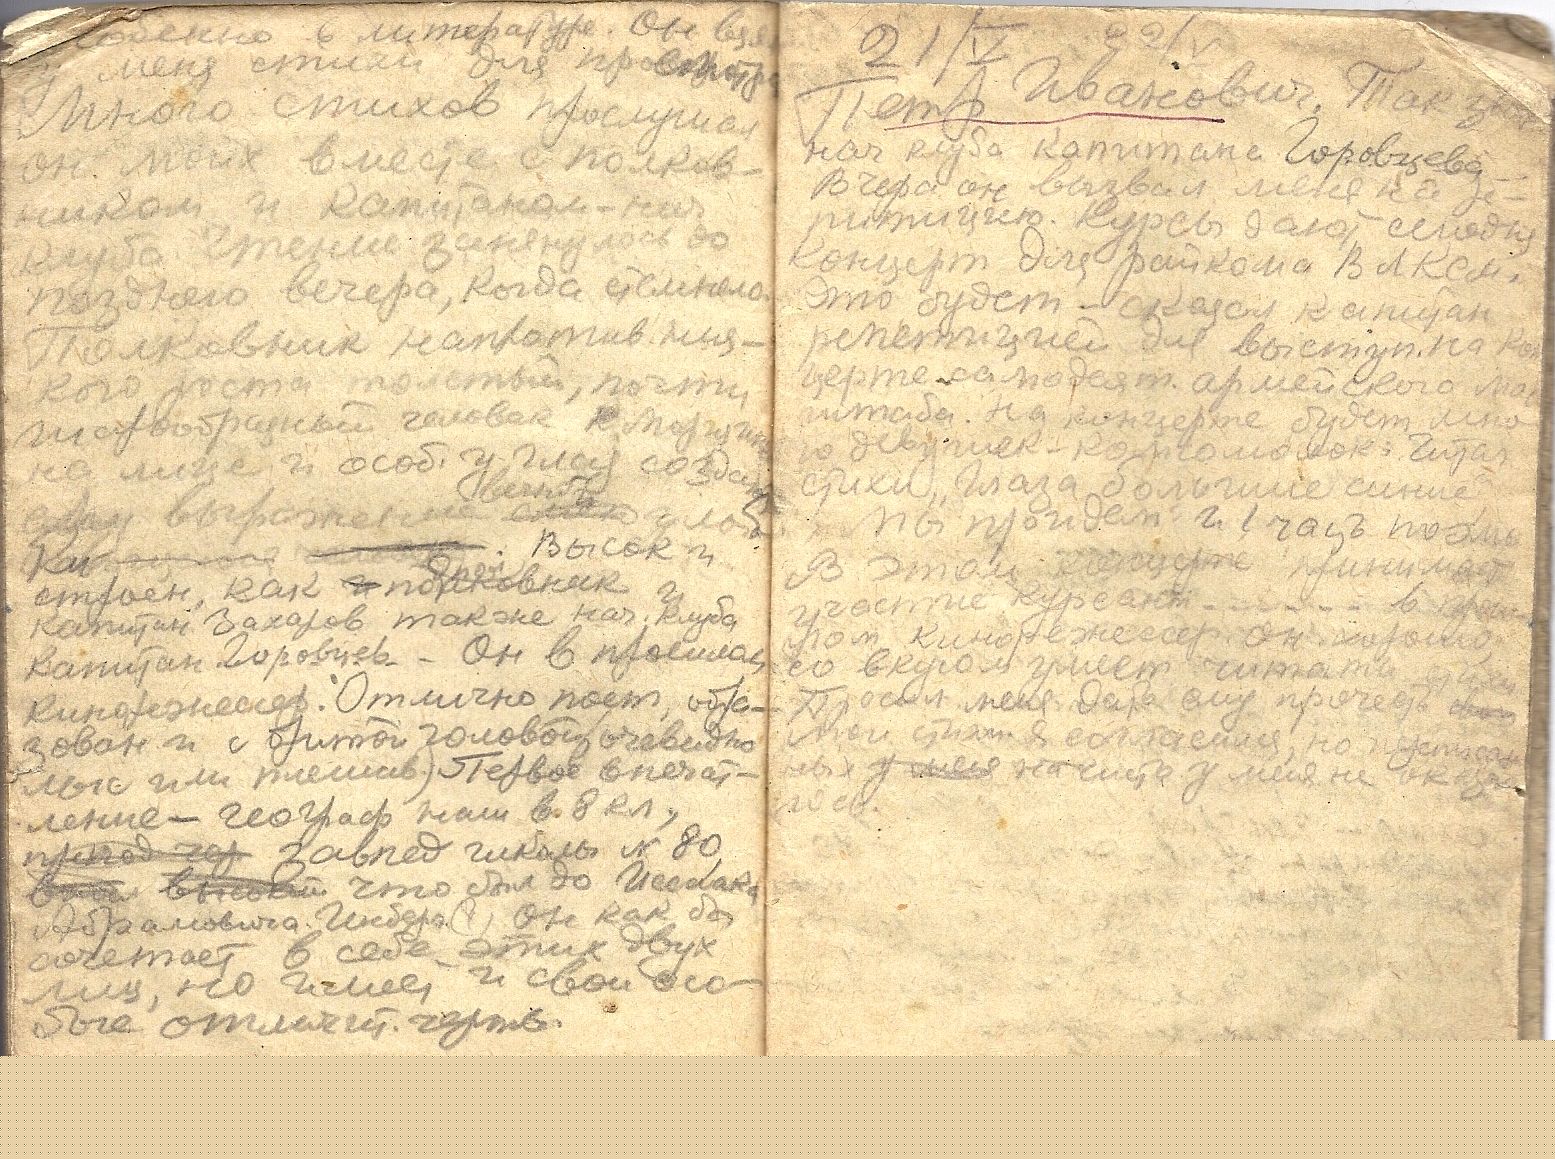 собенно в литературе. Он взял
у меня стихи для просмотра
Много стихов прослушал
он моих вместе с полков-
ником и капитаном-нач
клуба Чтение затянулось до
позднего вечера, когда стемнело.
Полковник напротив низ-
кого роста толстый, почти
шарообразный человек Морщины
на лице и особ. у глаз создают
выражение улыб
ки Высок и
строен, как подполковник и
капитан Захаров также нач. клуба
капитан Горовцев - Он в прошлом
кинорежиссер. Отлично поет, обра-
зован и с бритой головой, очевидно
лыс или плешив) Первое впечат-
ление - географ наш в 8 кл,
препод гер завпед школы № 80
был высокий что был до Исаака
Абрамовича Гибера(?) Он как бы
сочетает в себе этих двух
лиц, но имеет и свои осо-
бые отличит. черты.
21/V 22/V
Петр Иванович. Так
нач клуба капитана Горовцева
Вчера он вызвал меня на ре-
питицию. Курсы дают сегодня
концерт для райкома ВЛКСМ.
Это будет - сказал капитан
репетицией для выступ. на кон
церте самодеят. армейского
штаба. На концерте будет мно
го девушек-комсомолок: Читал
стихи, „Глаза большие синие"
Мы пройдем" и 1 часть поэмы
В этом концерте принимает
участие курсант - - - - - в прош
лом кинорежиссер. Он хорошо,
со вкусом умеет читать стихи
Просил меня дать ему прочесть
мои стихи Я согласился, но
ных у меня начисто у меня не оказа
лось.